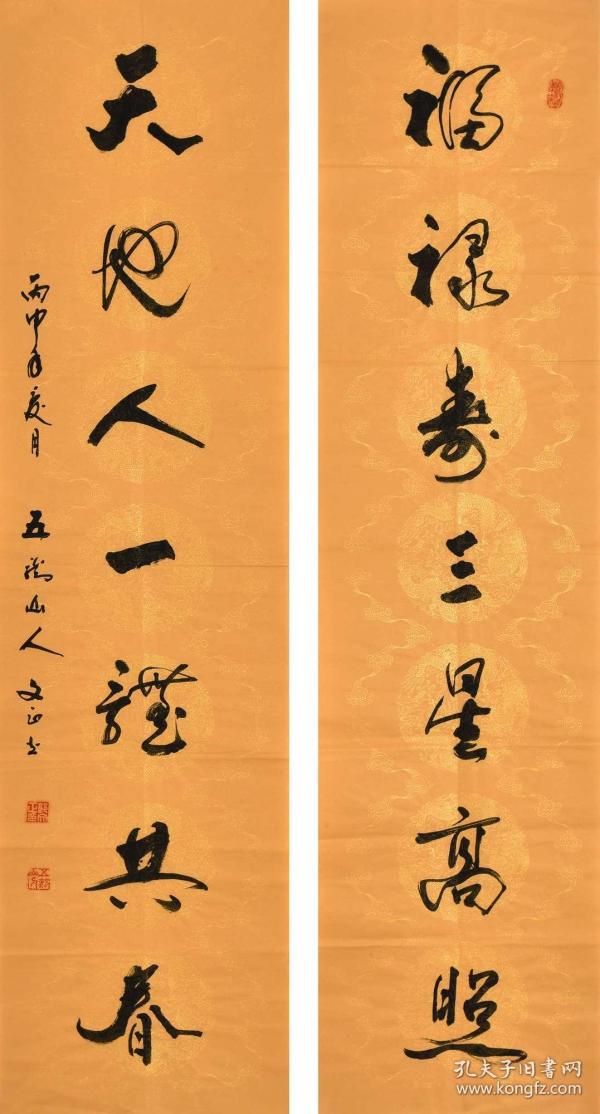 福禄寿三星高照
天地人一體共春
丙申年夏月 五樹山人 文正书
孔夫子旧书网
www.kongfz.com